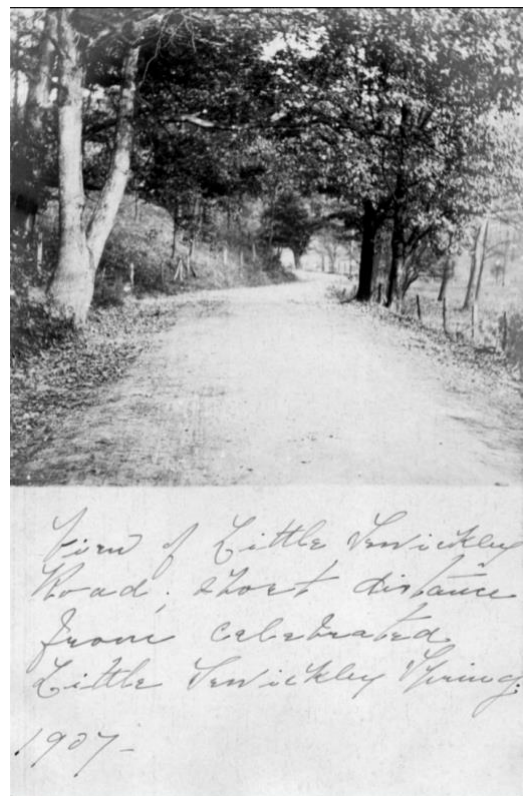 View of Little Sewickley
Road, short distance
from celebrated
Little Sewickley Spring.
1907-